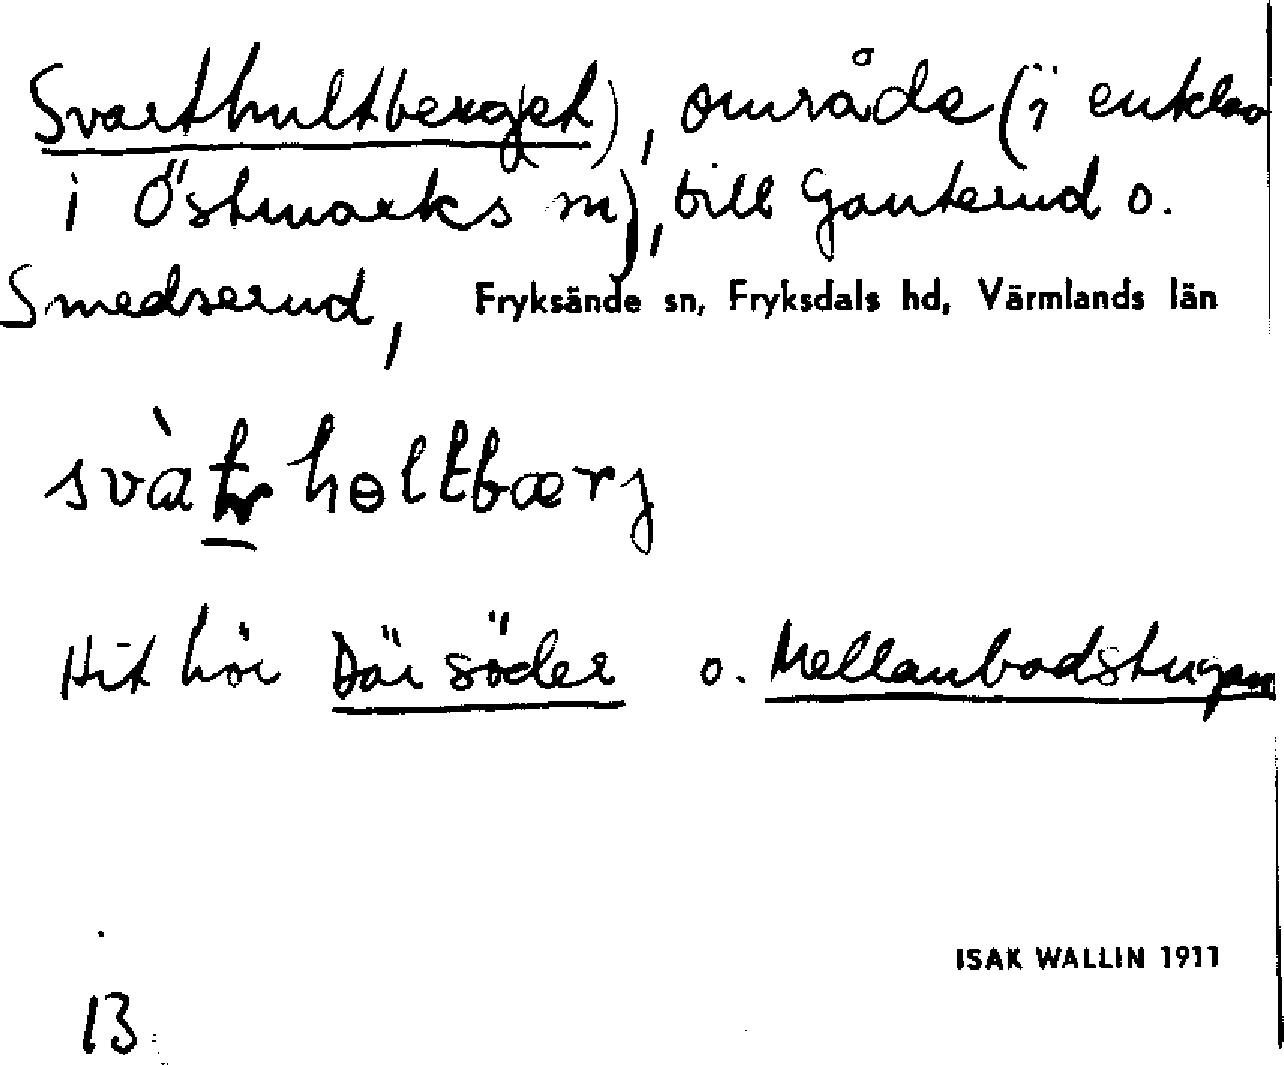 Svarthultberg(et), område (i enklav
i Östmarks sn), till Ganterud o.
Smedserud, Fryksände sn, Fryksdals hd, Värmlands län
svàthɵltbærj
Hit hör Där söder o. Mellanbadstugan
ISAK WALLIN 1911
13